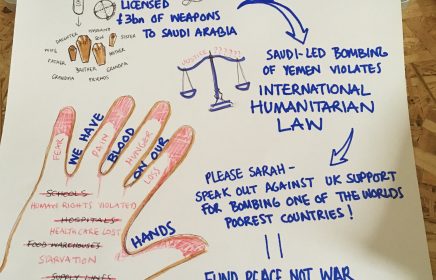 LICENSED
£3bn OF WEAPONS
TO SAUDI ARABIA
DAUGHTER
HUSBAND
SON
SISTER
WIFE
MOTHER
FATHER
BROTHER
GRANDMA
GRANDPA
FRIENDS
JUSTICE ??????
SAUDI-LED BOMBING
OF YEMEN VIOLATES
INTERNATIONAL
HUMANITARIAN
LAW
FEAR
WE HAVE
PAIN
BLOOD
HUNGER
ON OUR
LOSS
HANDS
SCHOOLS
HUMAN RIGHTS VIOLATED
HOSPITALS
HEALTHCARE LOST
FOOD WAREHOUSES
STARVATION
SUPPLY LINES
PLEASE SARAH -
SPEAK OUT AGAINST UK SUPPORT
FOR BOMBING ONE OF THE WORLDS
POOREST COUNTRIES!
FUND PEACE NOT WAR